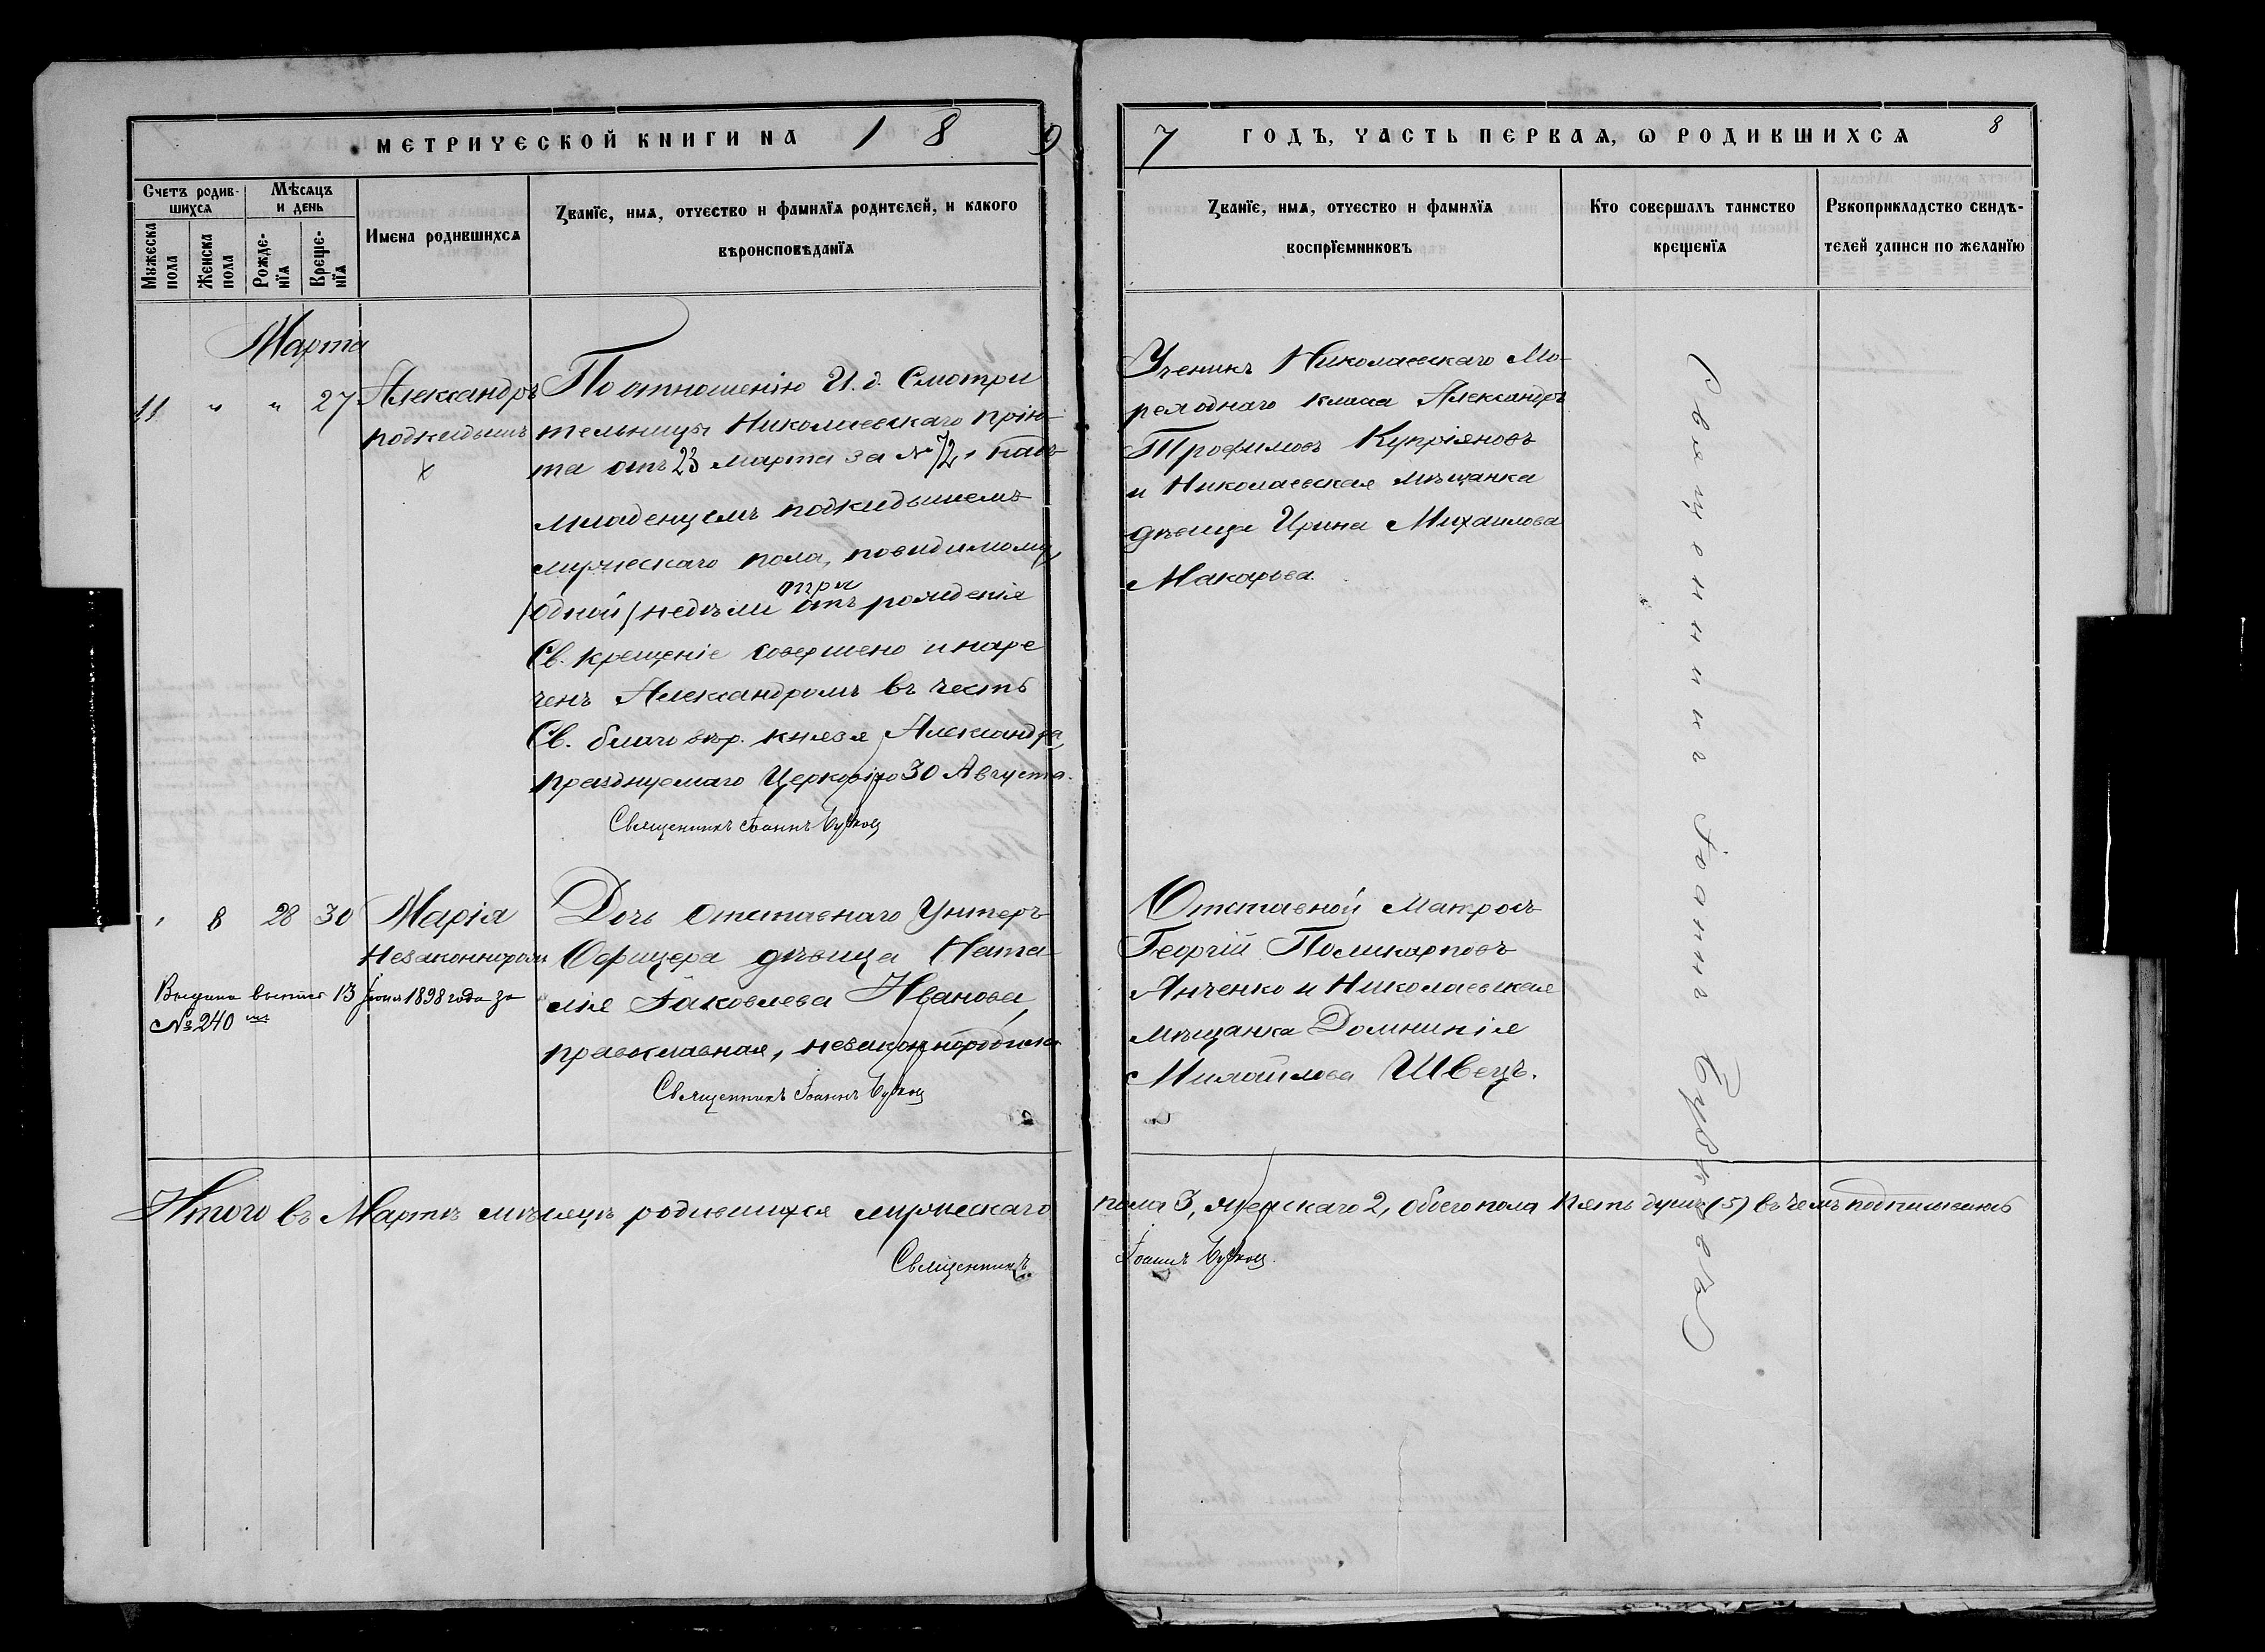 МЕТРИЧЕСКОЙ КНИГИ НА 1 8 9
7 ГОДЪ, ЧАСТЬ ПЕРВАѦ, Ѡ РОДИВШИХСѦ
8
Счетъ родив-
шихсѧ
Мѣсѧцъ
и день
Мꙋжеска
пола
Женска
пола
Рожде-
нїѧ
Креще-
нїѧ
Имена родившихсѧ
Званїе, имѧ, отчество и фамилїѧ родителей, и какого
вѣроисповѣданїѧ
Званїе, имѧ, отчество и фамилїѧ
воспрїемниковъ
Кто совершалъ таинство
крещенїѧ
Рꙋкоприкладство свидѣ-
телей записи по желанїю
Марта
11 " " 27
Александръ
подкидышъ
х
По отношенію И. д. Смотри
тельницы Николаевскаго прію-
та отъ 23 марта за № 72, надъ
младенцемъ подкидышемъ
мужескаго пола, повидимому
три
/одной/ недѣли отъ рожденія
Св. крещеніе совершено и наре
ченъ Александромъ въ честь
Св. благовѣр. князя Александра,
празднуемаго Церковію 30 Августа.
Священникъ Іоаннъ
Ученикъ Николаевскаго Мо-
реходнаго класа Александръ
Трофимовъ Купріяновъ
и Николаевская мѣщанка
дѣвица Ирина Михаилова
Макарова.
Священникъ Іоаннъ
" 8 28 30
Марія
Незаконнорожд
Выдана выпись 13 Іюня 1898 года за
№ 240
Дочь Отставнаго Унтеръ
Офицера дѣвица Ната
лія Іаковлева Иванова,
православная, незаконнородила
Священникъ Іоаннъ
Отставной Матросъ
Георгій Поликарповъ
Янченко и Николаевская
мѣщанка Домникія
Михайлова Швецъ.
Итого въ Мартѣ мѣсяцѣ родившихся мужескаго
пола 3, женскаго 2, обоего пола пять душъ (5) въ чемъ подписываюсь
Священникъ
Іоаннъ